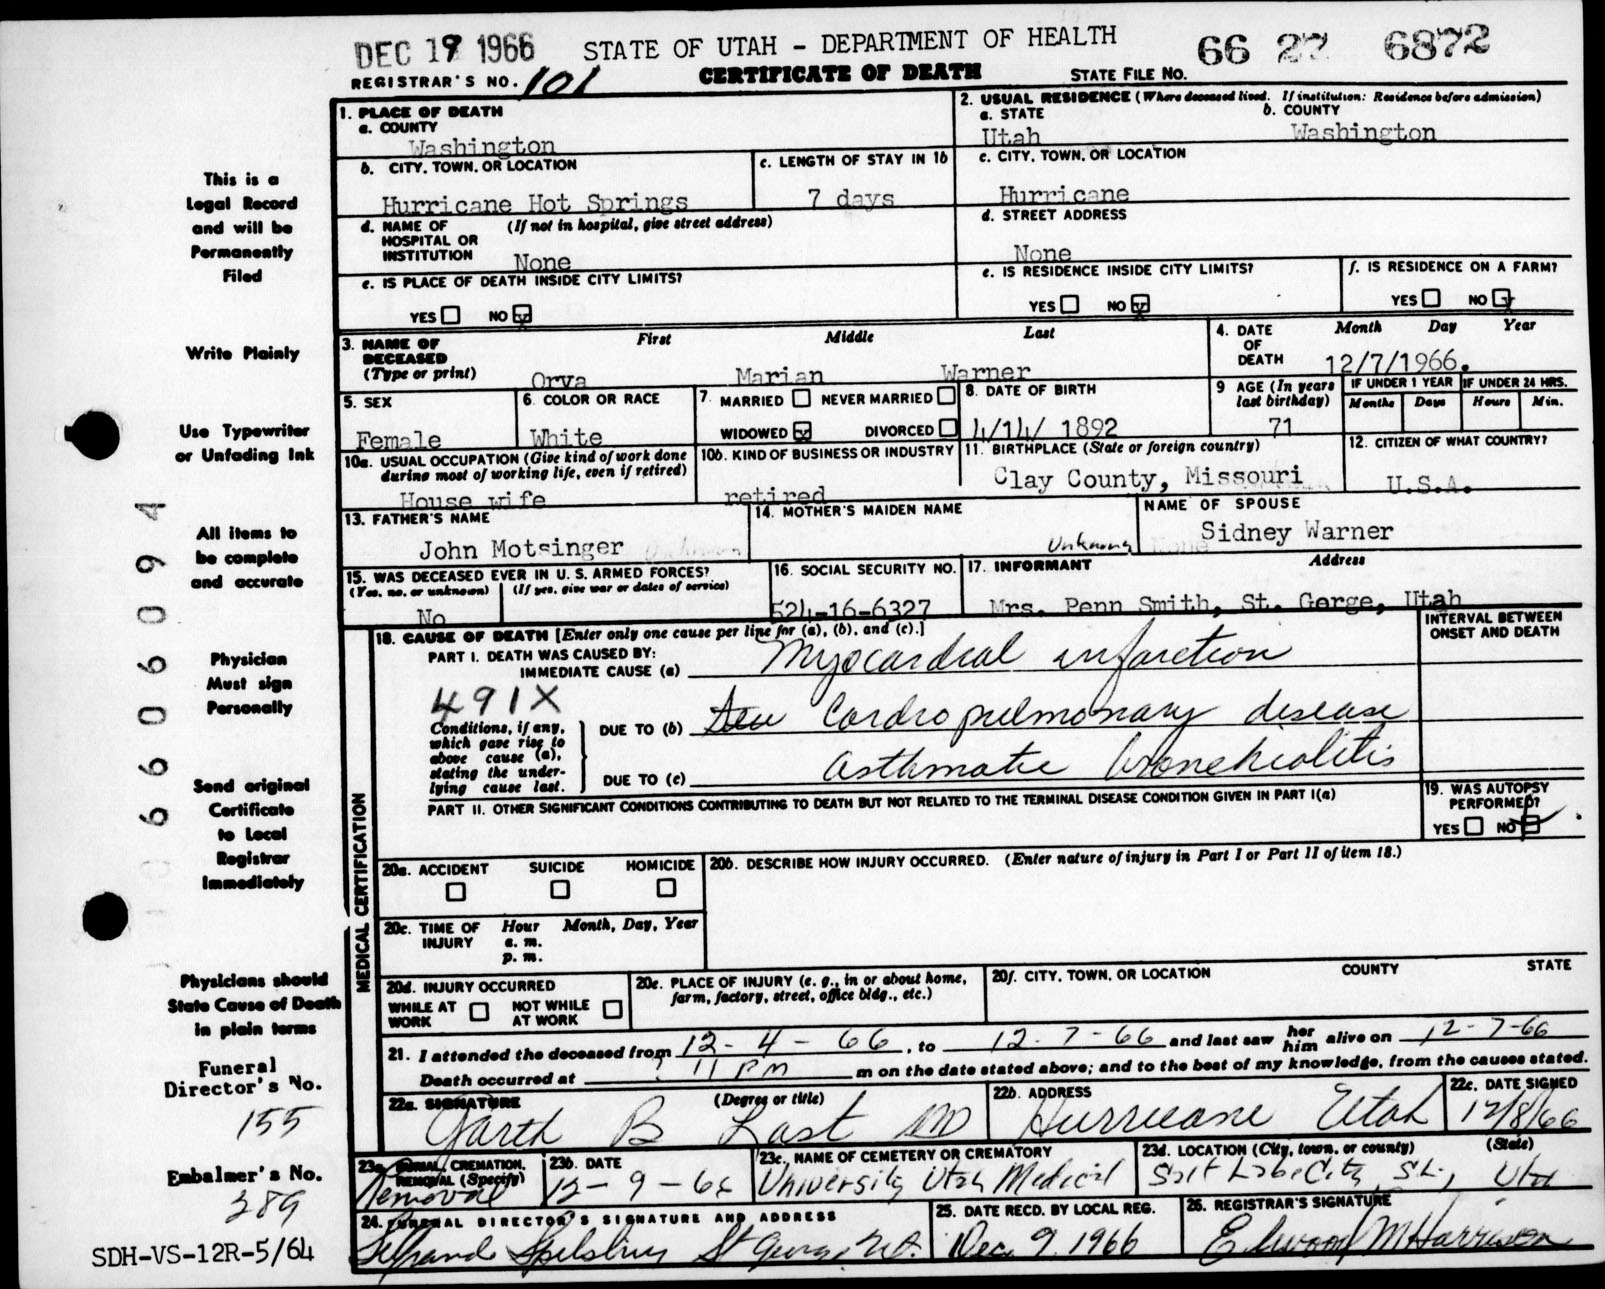 DEC 19 1966 STATE OF UTAH - DEPARTMENT OF HEALTH 66 27 6872
REGISTRAR'S NO. 101 CERTIFICATE OF DEATH STATE FILE NO.
1. PLACE OF DEATH
a. COUNTY
Washington
2. USUAL RESIDENCE (Where deceased lived. If institution: Residence before admission)
a. STATE b. COUNTY
Utah Washington
b. CITY, TOWN, OR LOCATION
Hurricane Hot Springs
c. LENGTH OF STAY IN 1b
7 days
c. CITY, TOWN, OR LOCATION
Hurricane
d. NAME OF (If not in hospital, give street address)
HOSPITAL OR
INSTITUTION
None
d. STREET ADDRESS
None
e. IS PLACE OF DEATH INSIDE CITY LIMITS?
YES NO x
e. IS RESIDENCE INSIDE CITY LIMITS?
YES NO x
f. IS RESIDENCE ON A FARM?
YES NO x
3. NAME OF First Middle Last
DECEASED
(Type or print)
Orva Marian Warner
4. DATE Month Day Year
OF
DEATH 12/7/1966.
5. SEX
Female
6. COLOR OR RACE
White
7. MARRIED NEVER MARRIED
WIDOWED x DIVORCED
8. DATE OF BIRTH
4/14/ 1892
9 AGE (In years
last birthday)
71
IF UNDER 1 YEAR IF UNDER 24 HRS.
Months Days Hours Min.
10a. USUAL OCCUPATION (Give kind of work done
during most of working life, even if retired)
House wife
10b. KIND OF BUSINESS OR INDUSTRY
retired
11. BIRTHPLACE (State or foreign country)
Clay County, Missouri
12. CITIZEN OF WHAT COUNTRY?
U.S.A.
13. FATHER'S NAME
John Motsinger
14. MOTHER'S MAIDEN NAME
Unknown
NAME OF SPOUSE
Sidney Warner
15. WAS DECEASED EVER IN U. S. ARMED FORCES?
(Yes, no, or unknown) (If yes, give war or dates of service)
No
16. SOCIAL SECURITY NO.
524-16-6327
17. INFORMANT Address
Mrs. Penn Smith, St. Gerge, Utah
18. CAUSE OF DEATH [Enter only one cause per line for (a), (b), and (c).]
INTERVAL BETWEEN
ONSET AND DEATH
PART I. DEATH WAS CAUSED BY:
IMMEDIATE CAUSE (a) Myocardial infarction
491X
Conditions, if any,
which gave rise to
above cause (a),
stating the under-
lying cause last.
DUE TO (b) Cardiopulmonary disease
DUE TO (c) asthmatic bronchiolitis
PART II. OTHER SIGNIFICANT CONDITIONS CONTRIBUTING TO DEATH BUT NOT RELATED TO THE TERMINAL DISEASE CONDITION GIVEN IN PART I(a)
19. WAS AUTOPSY
PERFORMED?
YES NO
MEDICAL CERTIFICATION
20a. ACCIDENT SUICIDE HOMICIDE
20b. DESCRIBE HOW INJURY OCCURRED. (Enter nature of injury in Part I or Part II of item 18.)
20c. TIME OF Hour Month, Day, Year
INJURY a. m.
p. m.
20d. INJURY OCCURRED
WHILE AT NOT WHILE
WORK AT WORK
20e. PLACE OF INJURY (e. g., in or about home,
farm, factory, street, office bldg., etc.)
20f. CITY, TOWN, OR LOCATION COUNTY STATE
21. I attended the deceased from 12-4-66, to 12-7-66 and last saw her him alive on 12-7-66
Death occurred at ? 11 PM m on the date stated above; and to the best of my knowledge, from the causes stated.
22a. SIGNATURE (Degree or title)
Garth B Last MD
22b. ADDRESS
Hurricane Utah
22c. DATE SIGNED
12/8/66
23a. BURIAL, CREMATION,
REMOVAL (Specify)
Removal
23b. DATE
12-9-66
23c. NAME OF CEMETERY OR CREMATORY
University Utah Medical
23d. LOCATION (City, town, or county) (State)
Salt Lake City, S.L., Utah
24. FUNERAL DIRECTOR'S SIGNATURE AND ADDRESS
Spilsbury St George Ut.
25. DATE RECD. BY LOCAL REG.
Dec 9 1966
26. REGISTRAR'S SIGNATURE
Elwood M Harrison
This is a
Legal Record
and will be
Permanently
Filed
Write Plainly
Use Typewriter
or Unfading Ink
All items to
be complete
and accurate
Physician
Must sign
Personally
Send original
Certificate
to Local
Registrar
Immediately
Physicians should
State Cause of Death
in plain terms
Funeral
Director's No.
155
Embalmer's No.
389
SDH-VS-12R-5/64
6606094